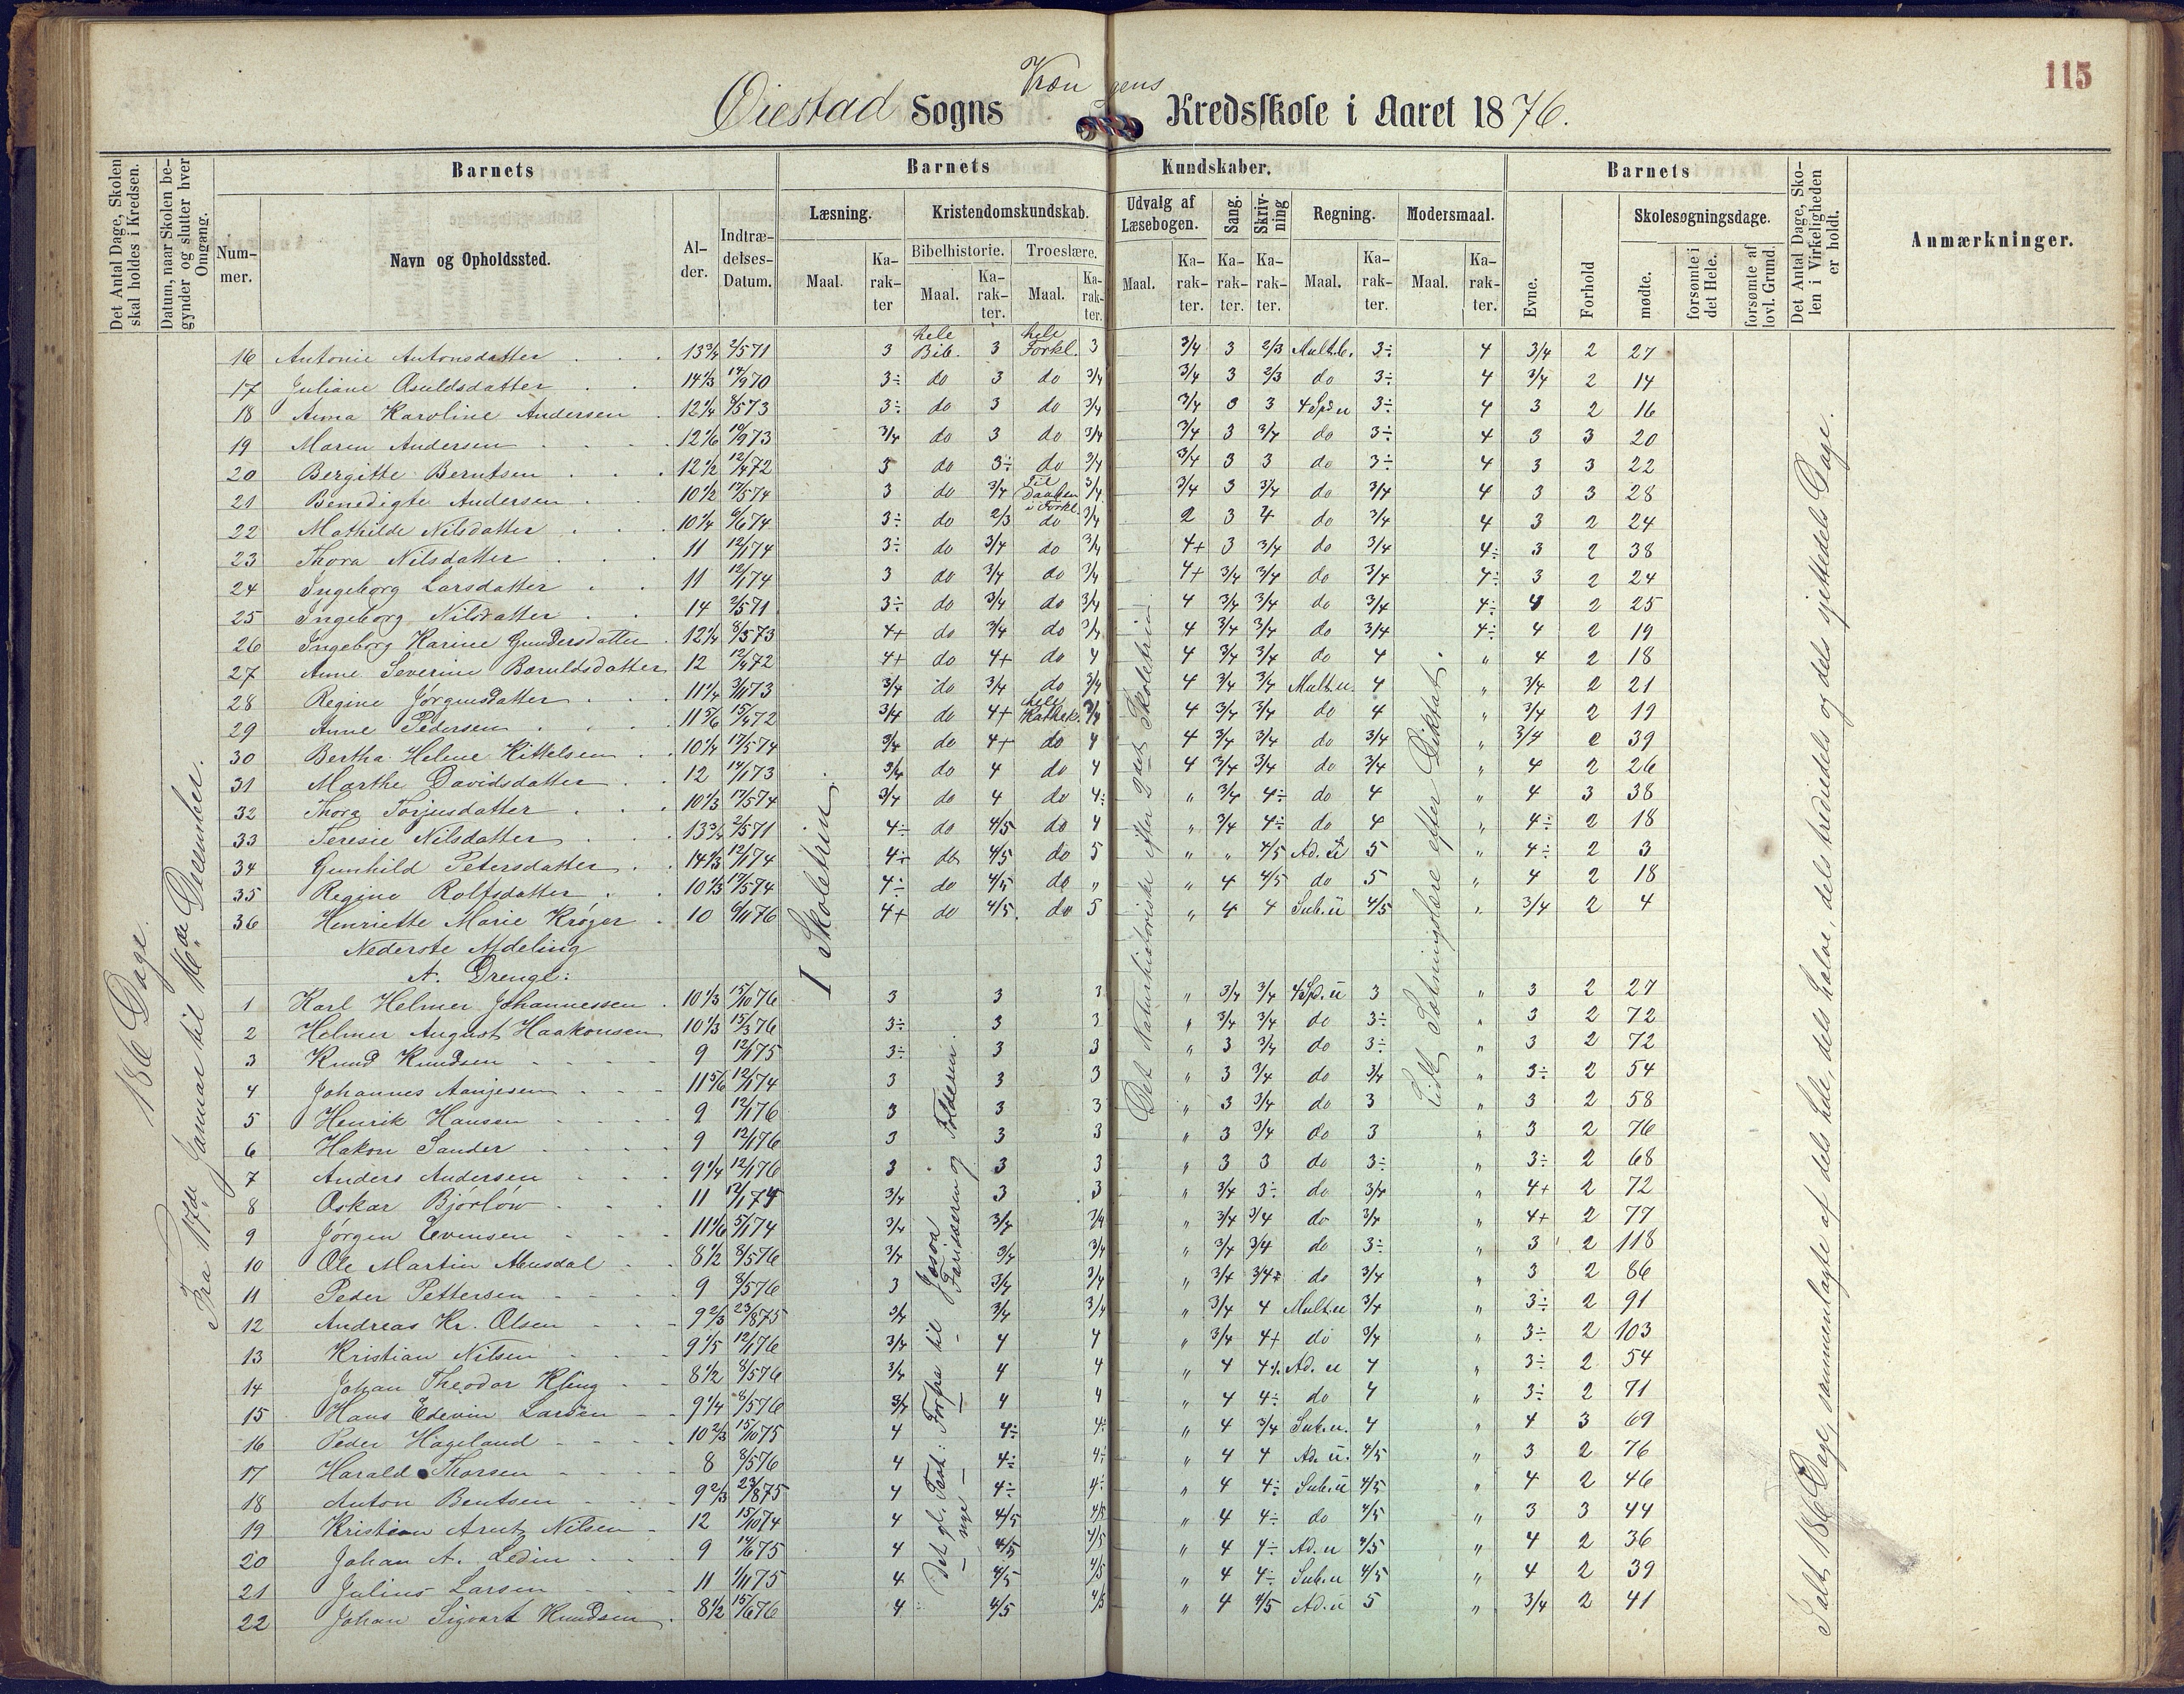 115
Øiestad Sogns Kredsskole i Aaret 1876.
Barnets Barnets Kundskaber. Barnets
Det Antal Dage, Skolen skal holdes i Kredsen.
Datum, naar Skolen begynder og slutter hver Omgang.
Nummer.
Navn og Opholdssted.
Alder.
Indtrædelses-Datum.
Læsning. Kristendomskundskab. Udvalg af Læsebogen. Sang. Skrivning Regning. Modersmaal. Skolesøgningsdage.
Bibelhistorie. Troeslære.
Maal. Karakter Maal. Karakter. Maal. Karakter. Maal. Karakter. Karakter. Karakter. Maal. Karakter. Maal. Karakter.
Evne. Forhold mødte. forsømte i det Hele. forsømte af lovl. Grund.
Det Antal Dage, Skolen i Virkeligheden er holdt.
Anmærkninger.
186 Dage.
Fra 17de Januar til 16de December.
I Skoletrin
Det Naturhistoriske efter 2det Skoletrin
Lidt Sætningslære efter Diktat.
Ialt 186 Dage, sammenlagte af dels hele, dels halve, dels trediedels og dels sjettedels Dage.
16 Antonie Antonsdatter 13¾ 2/5 71 3 hele Bib. 3 hele Forkl. 3 3/4 3 2/3 Mult.b. 3÷ 4 3/4 2 27
17 Juliane Osuldsdatter 14⅓ 14/9 70 3÷ do 3 do 3/4 3/4 3 2/3 do 3÷ 4 3/4 2 14
18 Anna Karoline Andersen 12¼ 8/5 73 3÷ do 3 do 3/4 3/4 3 3 4 Sp. u 3÷ 4 3 2 16
19 Maren Andersen 12⅙ 10/9 73 3/4 do 3 do 3/4 3/4 3 3/4 do 3÷ 4 3 3 20
20 Bergitte Berntsen 12½ 12/4 72 3 do 3÷ do 3/4 3/4 3 3 do 3÷ 4 3 3 22
21 Benedigte Andersen 10½ 17/5 74 3 do 3/4 Til Daaben i Forkl. 3/4 3/4 3 3/4 do 3/4 4 3 3 28
22 Mathilde Nilsdatter 10¼ 6/6 74 3÷ do 2/3 do 3/4 2 3 4 do 3/4 4 3 2 24
23 Thora Nilsdatter 11 12/1 74 3÷ do 3/4 do 3/4 4+ 3 3/4 do 3/4 4÷ 3 2 38
24 Ingeborg Larsdatter 11 12/1 74 3 do 3/4 do 3/4 4+ 3/4 3/4 do 3/4 4÷ 3 2 24
25 Ingeborg Nilsdatter 14 2/5 71 3÷ do 3/4 do 3/4 4 3/4 3/4 do 3/4 4÷ 4 2 25
26 Ingeborg Karine Gundersdatter 12¼ 8/5 73 4+ do 3/4 do 3/4 4 3/4 3/4 do 3/4 4÷ 4 2 19
27 Anne Severine Boruldsdatter 12 12/4 72 4+ do 4+ do 4 4 3/4 3/4 do 4 " 4 2 18
28 Regine Jørgensdatter 11¼ 3/11 73 3/4 do 3/4 do 3/4 4 3/4 3/4 Mult.u. 4 " 3/4 2 21
29 Anne Pedersen 11⅚ 15/4 72 3/4 do 4+ hele Kathek. 3/4 4 3/4 3/4 do 4 " 3/4 2 19
30 Bertha Helene Kittelsen 10¼ 17/5 74 3/4 do 4+ do 4 4 3/4 3/4 do 3/4 " 3/4 2 39
31 Marthe Davidsdatter 12 14/1 73 3/4 do 4 do 4 4 3/4 3/4 do 3/4 " 4 2 26
32 Thora Torjusdatter 10⅓ 17/5 74 3/4 do 4 do 4÷ " 3/4 4÷ do 4 " 4 3 38
33 Teresie Nilsdatter 13¾ 2/5 71 4÷ do 4/5 do 4 " 3/4 4÷ do 4 " 4÷ 2 18
34 Gunhild Petersdatter 14⅓ 12/1 74 4÷ do 4/5 do 5 " " 4/5 Ad. u 5 " 4÷ 2 3
35 Regine Rolfsdatter 10⅓ 17/5 74 4÷ do 4/5 do " " 4 4/5 do 5 " 4 2 18
36 Henriette Marie Krøger 10 6/11 76 4+ do 4/5 do 5 " 4 4 Sub. u 4/5 " 3/4 2 4
Nederste Afdeling
A. Drenge:
Det gl. Test: Forfra til Josva
— nye — — — Fariseeren og Tolderen.
1 Karl Helmer Johannessen 10⅓ 15/10 76 3 3 3 " 3/4 3/4 4 Sp. u 3 " 3 2 27
2 Helmer August Haakonsen 10⅓ 15/3 76 3÷ 3 3 " 3/4 3/4 do 3÷ " 3 2 72
3 Knud Knudsen 9 12/1 75 3÷ 3 3 " 3 3/4 do 3÷ " 3 2 72
4 Johannes Aanjesen 11⅚ 12/1 74 3 3 3 " 3 3/4 do 3/4 " 3÷ 2 54
5 Henrik Hansen 9 12/1 76 3 3 3 " 3 3/4 do 3 " 3 2 58
6 Hakon Sander 9 12/1 76 3 3 3 " 3 3/4 do 3 " 3 2 76
7 Anders Andersen 9¼ 12/1 76 3 3 3 " 3 3 do 3÷ " 3÷ 2 68
8 Oskar Bjørløw 11 12/1 74 3/4 3 3 " 3/4 3÷ do 3/4 " 4+ 2 72
9 Jørgen Evensen 11⅙ 5/1 74 3/4 3/4 3/4 " 3/4 3/4 do 3/4 " 4+ 2 77
10 Ole Martin Musdal 8½ 8/5 76 3/4 3/4 3/4 " 3/4 3/4 do 3÷ " 3 2 118
11 Peder Pettersen 9 8/5 76 3 3/4 3/4 " 3/4 3/4÷ do 3/4 " 3 2 86
12 Andreas Kr. Olsen 9⅔ 23/8 75 3/4 3/4 3/4 " 3/4 4 Mult.u 3/4 " 3÷ 2 91
13 Kristian Nilsen 9⅕ 12/1 76 3/4 4 4 " 3/4 4+ do 3/4 " 3÷ 2 103
14 Johan Theodor Kling 8½ 8/5 76 3/4 4 4 " 4 4÷ Ad. u 4 " 3÷ 2 54
15 Hans Edevin Larsen 9¼ 8/5 76 3/4 4 4 " 4 4÷ do 4 " 3÷ 2 71
16 Peder Hageland 10⅔ 15/10 75 4 4÷ 4÷ " 4 3/4 Sub.u. 4 " 4 3 69
17 Harald Thorsen 8 8/5 76 4 4÷ 4÷ " 4 4 Ad. u. 4/5 " 3 2 76
18 Anton Bentsen 9⅔ 23/8 75 4 4÷ 4÷ " 4 4÷ Sub.u 4/5 " 4 2 46
19 Kristian Arnt Nilsen 12 15/10 74 4 4/5 4/5 " 4 4÷ do 4/5 " 3 3 44
20 Johan A. Ledin 9 14/6 75 4 4/5 4/5 " 4 4÷ Ad. u 4/5 " 4 2 36
21 Julius Larsen 11 1/11 75 4 4/5 4/5 " 4 4÷ Sub.u 4/5 " 4 2 39
22 Johan Sigvart Knudsen 8½ 15/6 76 4 4/5 4/5 " 4 4/5 Ad. u 5 " 3/4 2 41